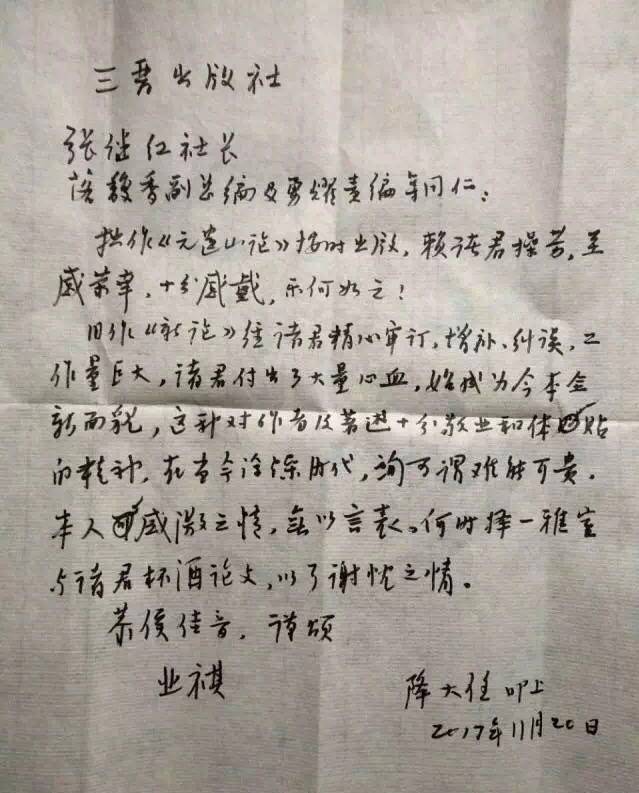 三晋出版社
张继红社长
落馥香副总编及勇耀责编等同仁:
拙作《元遗山论》按时出版,赖诸君操劳,至
感荣幸,十分感戴,乐何如之!
旧作《新论》经诸君精心审订,增补、纠误,工
作量巨大,诸君付出了大量心血,始成为今本全
新面貌,这种对作者及著述十分敬业和体贴
的精神,在当今浮躁时代,洵可谓难能可贵。
本人感激之情,无以言表。何时择一雅室
与诸君杯酒论文,以了谢忱之情。
恭候佳音,谨颂
业祺
降大任 叩上
2017年11月20日